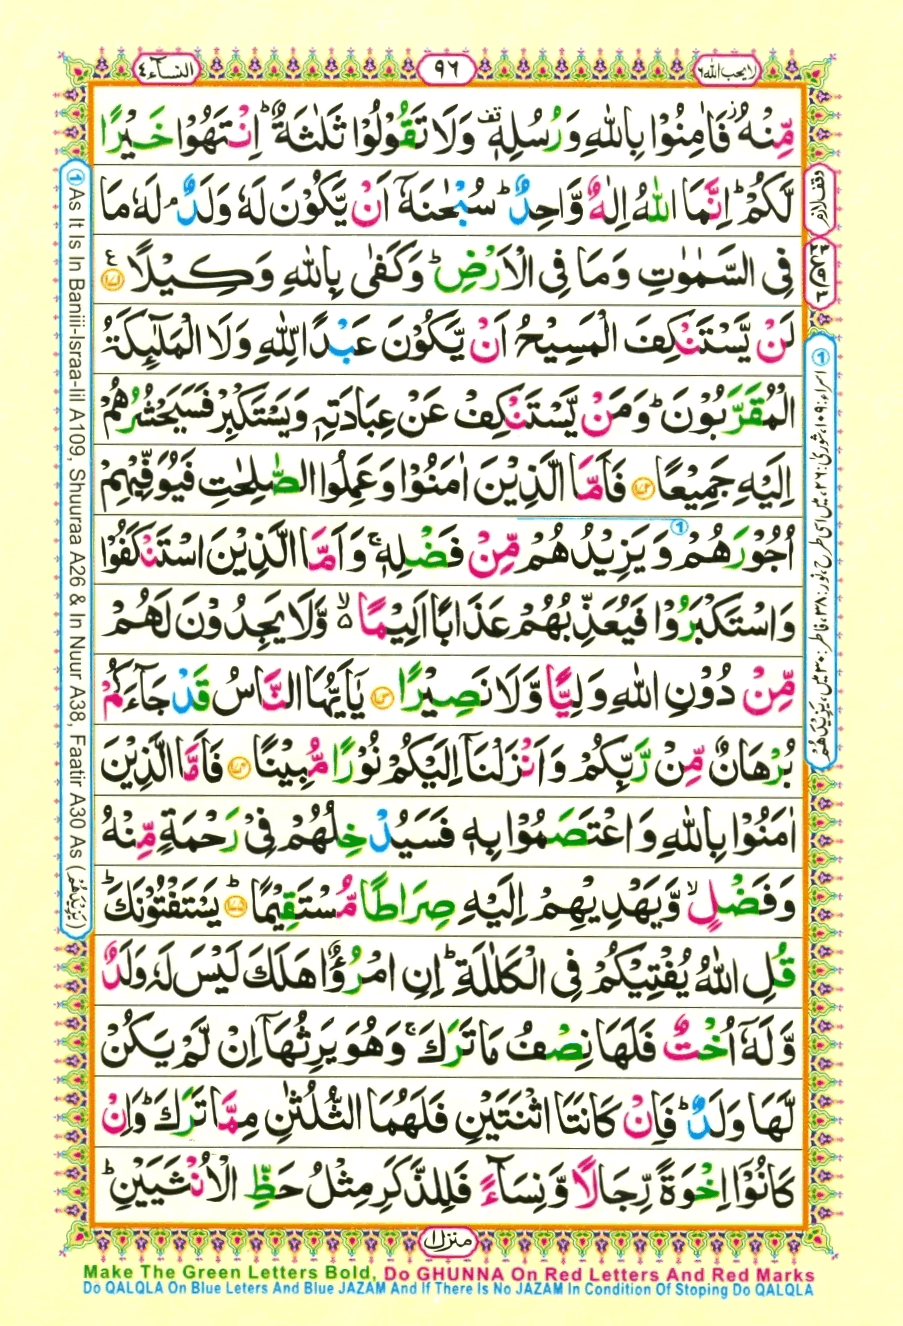 لا يحب الله ٦
٩٦
النسآء ٤
مِّنْهُ ۫ فَاٰمِنُوْا بِاللّٰهِ وَرُسُلِهٖ ۫ وَلَا تَقُوْلُوْا ثَلٰثَةٌ ؕ اِنْتَهُوْا خَيْرًا
لَّكُمْ ؕ اِنَّمَا اللّٰهُ اِلٰهٌ وَّاحِدٌ ؕ سُبْحٰنَهٗۤ اَنْ يَّكُوْنَ لَهٗ وَلَدٌ ۘ لَهٗ مَا
فِى السَّمٰوٰتِ وَمَا فِى الْاَرْضِ ؕ وَكَفٰى بِاللّٰهِ وَكِيْلًا ﴿۱۷۱﴾ ع
لَنْ يَّسْتَنْكِفَ الْمَسِيْحُ اَنْ يَّكُوْنَ عَبْدًا لِّلّٰهِ وَلَا الْمَلٰٓئِكَةُ
الْمُقَرَّبُوْنَ ؕ وَمَنْ يَّسْتَنْكِفْ عَنْ عِبَادَتِهٖ وَيَسْتَكْبِرْ فَسَيَحْشُرُهُمْ
اِلَيْهِ جَمِيْعًا ﴿۱۷۲﴾ فَاَمَّا الَّذِيْنَ اٰمَنُوْا وَعَمِلُوا الصّٰلِحٰتِ فَيُوَفِّيْهِمْ
اُجُوْرَهُمْ وَيَزِيْدُهُمْ مِّنْ فَضْلِهٖ ۚ وَاَمَّا الَّذِيْنَ اسْتَنْكَفُوْا
وَاسْتَكْبَرُوْا فَيُعَذِّبُهُمْ عَذَابًا اَلِيْمًا ۙ۬ وَّلَا يَجِدُوْنَ لَهُمْ
مِّنْ دُوْنِ اللّٰهِ وَلِيًّا وَّلَا نَصِيْرًا ﴿۱۷۳﴾ يٰۤاَيُّهَا النَّاسُ قَدْ جَآءَكُمْ
بُرْهَانٌ مِّنْ رَّبِّكُمْ وَاَنْزَلْنَاۤ اِلَيْكُمْ نُوْرًا مُّبِيْنًا ﴿۱۷۴﴾ فَاَمَّا الَّذِيْنَ
اٰمَنُوْا بِاللّٰهِ وَاعْتَصَمُوْا بِهٖ فَسَيُدْخِلُهُمْ فِىْ رَحْمَةٍ مِّنْهُ
وَفَضْلٍ ۙ وَّيَهْدِيْهِمْ اِلَيْهِ صِرَاطًا مُّسْتَقِيْمًا ﴿۱۷۵﴾ؕ يَسْتَفْتُوْنَكَ ؕ
قُلِ اللّٰهُ يُفْتِيْكُمْ فِى الْكَلٰلَةِ ؕ اِنِ امْرُؤٌا هَلَكَ لَيْسَ لَهٗ وَلَدٌ
وَّلَهٗۤ اُخْتٌ فَلَهَا نِصْفُ مَا تَرَكَ ۚ وَهُوَ يَرِثُهَاۤ اِنْ لَّمْ يَكُنْ
لَّهَا وَلَدٌ ؕ فَاِنْ كَانَتَا اثْنَتَيْنِ فَلَهُمَا الثُّلُثٰنِ مِمَّا تَرَكَ ؕ وَاِنْ
كَانُوْۤا اِخْوَةً رِّجَالًا وَّنِسَآءً فَلِلذَّكَرِ مِثْلُ حَظِّ الْاُنْثَيَيْنِ ؕ
منزل ۱
وقف لازم
① اسراء:۱۰۹، شورٰى:۲۶، میں اسی طرح، نور:۳۸، فاطر:۳۰ میں، يَزِيْدَهُمْ
① As It Is In Baniii-Israa-Iil A109, Shuuraa A26 & In Nuur A38, Faatir A30 As (يَزِيْدَهُمْ)
Make The Green Letters Bold, Do GHUNNA On Red Letters And Red Marks
Do QALQLA On Blue Leters And Blue JAZAM And If There Is No JAZAM In Condition Of Stoping Do QALQLA